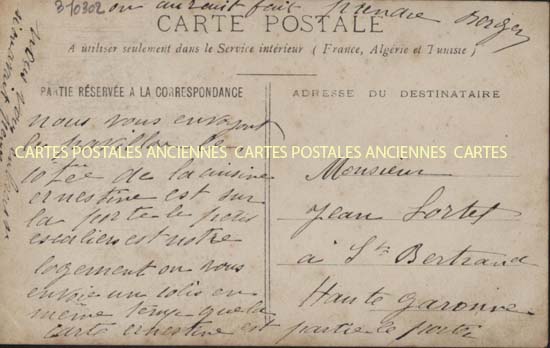 310302
on aurait fait prendre
CARTE POSTALE
A utiliser seulement dans le Service intérieur ( France, Algérie et Tunisie )
PARTIE RÉSERVÉE A LA CORRESPONDANCE
ADRESSE DU DESTINATAIRE
nous vous envoyont
le pavillon
CARTES POSTALES ANCIENNES CARTES POSTALES ANCIENNES CARTES
cotée de la cuisine
ernestine est sur
la porte le petit
escaliers est notre
logement on vous
envoie un colis en
meme temp que la
carte ernestine est partie le porté
Monsieur
Jean Sortet
à St Bertrand
Haute garonne